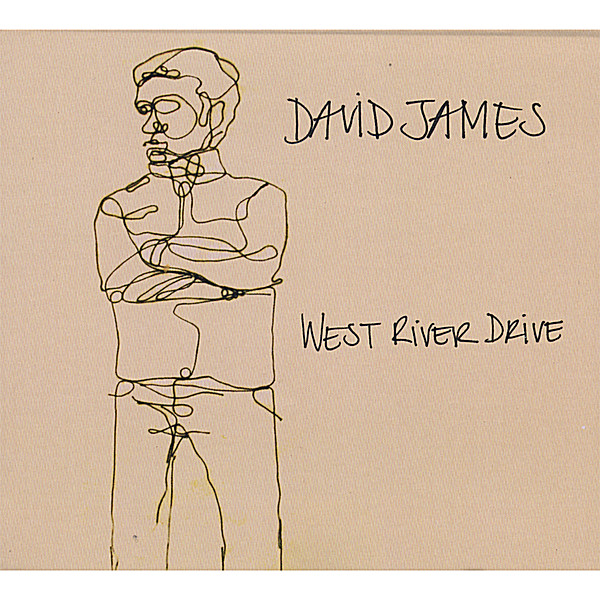 DAVID JAMES
WEST RIVER DRIVE